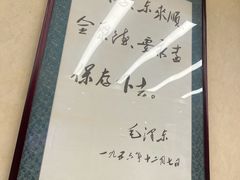 东来顺
全聚德要永
保存下去。
毛泽东
一九五六年十二月七日